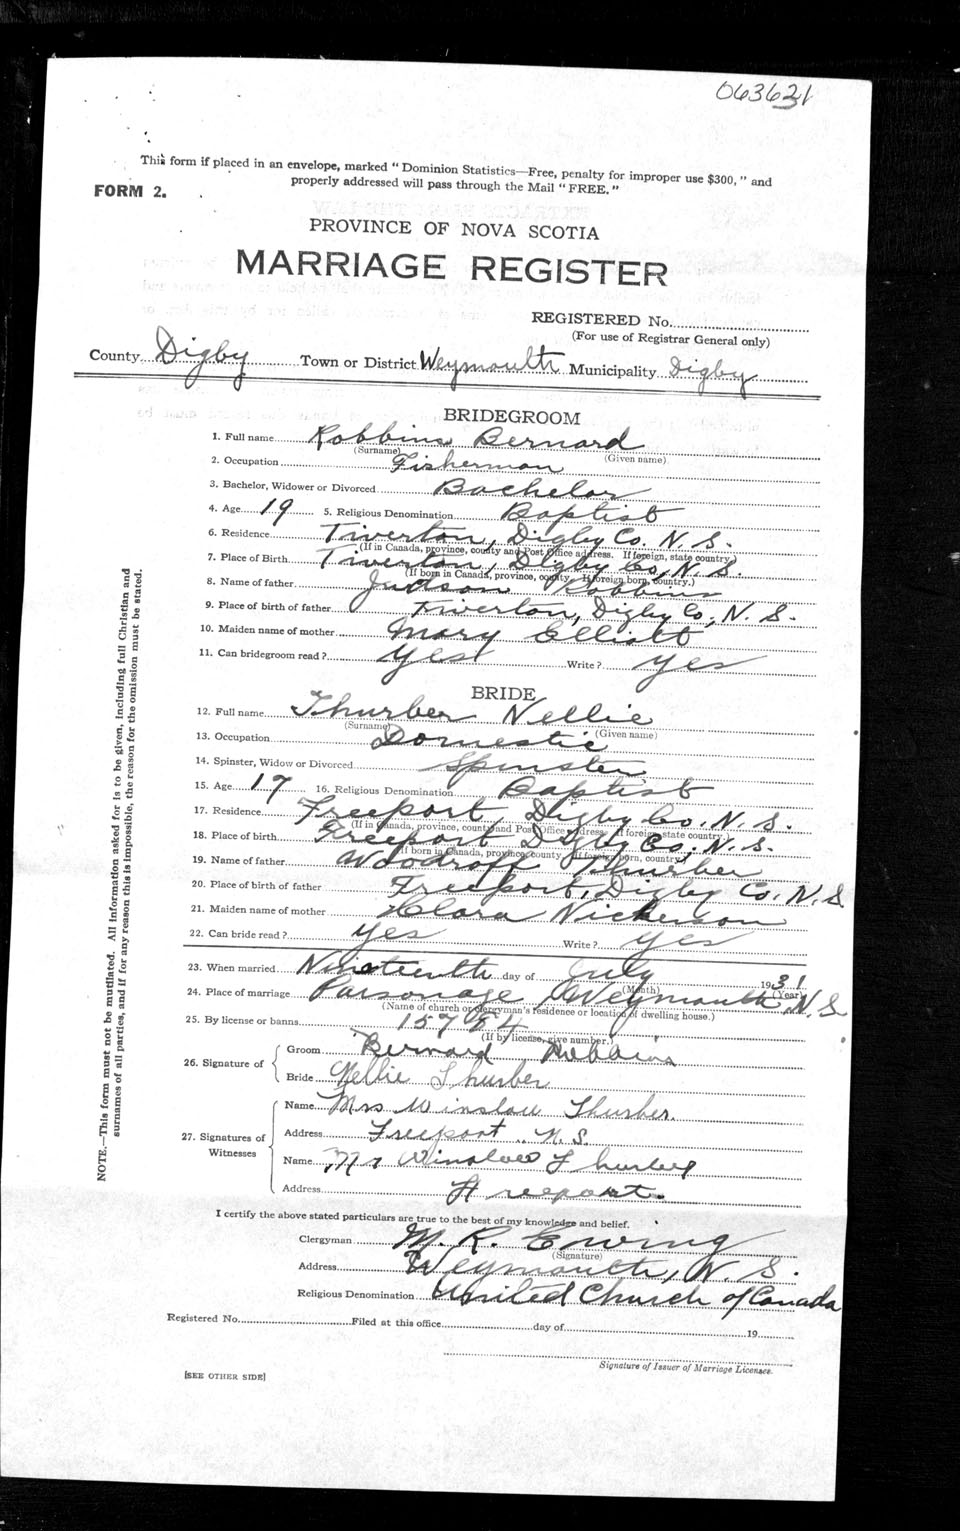 063631
This form if placed in an envelope, marked "Dominion Statistics—Free, penalty for improper use $300," and
properly addressed will pass through the Mail "FREE."
FORM 2.
PROVINCE OF NOVA SCOTIA
MARRIAGE REGISTER
REGISTERED No.
(For use of Registrar General only)
County Digby Town or District Weymouth Municipality Digby
BRIDEGROOM
1. Full name Robbins Bernard
(Surname) (Given name)
2. Occupation Fisherman
3. Bachelor, Widower or Divorced Bachelor
4. Age 19 5. Religious Denomination Baptist
6. Residence Tiverton, Digby Co. N. S.
(If in Canada, province, county and Post Office address. If foreign, state country.)
7. Place of Birth Tiverton, Digby Co, N. S.
(If born in Canada, province, county. If foreign born, country.)
8. Name of father Judson Robbins
9. Place of birth of father Tiverton, Digby Co, N. S.
10. Maiden name of mother Mary Elliott
11. Can bridegroom read? yes Write? yes
BRIDE
12. Full name Thurber Nellie
(Surname) (Given name)
13. Occupation Domestic
14. Spinster, Widow or Divorced Spinster
15. Age 17 16. Religious Denomination Baptist
17. Residence Freeport, Digby Co. N. S.
(If in Canada, province, county and Post Office address. If foreign state country.)
18. Place of birth Freeport Digby Co; N. S.
(If born in Canada, province, county. If foreign born, country)
19. Name of father Woodroff Thurber
20. Place of birth of father Freeport, Digby Co, N. S
21. Maiden name of mother Clara Nickerson
22. Can bride read? yes Write? yes
23. When married Nineteenth day of July 1931
(Month) (Year)
24. Place of marriage Parsonage, Weymouth N. S
(Name of church or clergyman's residence or location of dwelling house.)
25. By license or banns 15784
(If by license, give number.)
26. Signature of
Groom Bernard Robbins
Bride Nellie Thurber
27. Signatures of Witnesses
Name Mrs Winslow Thurber.
Address Freeport N. S.
Name Mr Winslow Thurber
Address Freeport.
I certify the above stated particulars are true to the best of my knowledge and belief.
Clergyman M. R. Ewing
(Signature)
Address Weymouth, N. S.
Religious Denomination United Church of Canada
Registered No. Filed at this office day of 19
Signature of Issuer of Marriage Licenses.
[SEE OTHER SIDE]
NOTE.—This form must not be mutilated. All information asked for is to be given, including full Christian and
surnames of all parties, and if for any reason this is impossible, the reason for the omission must be stated.